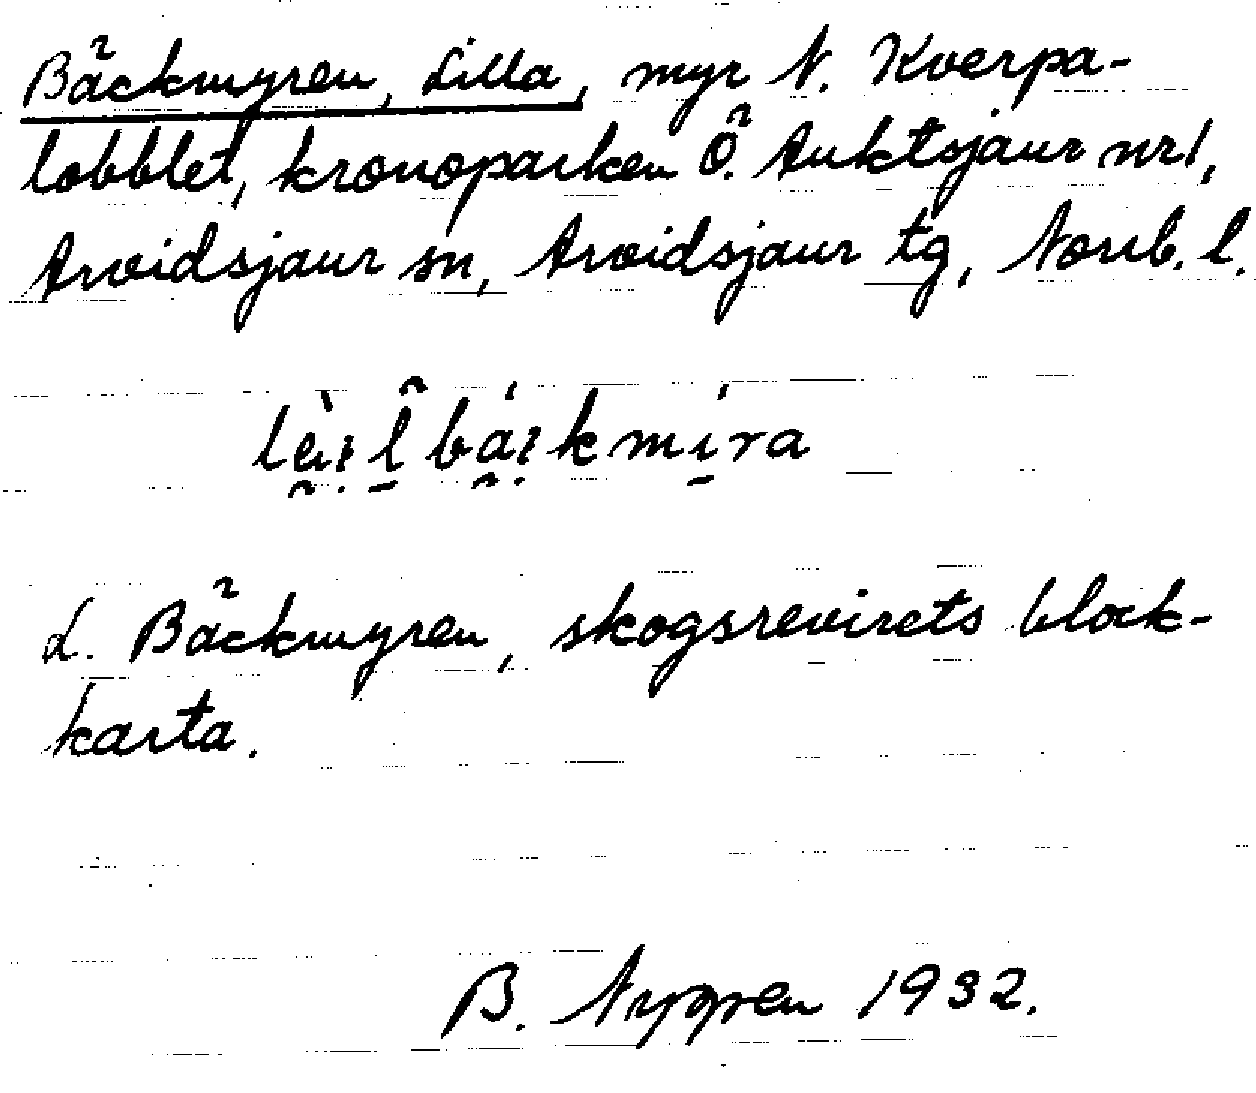 Bäckmyren, Lilla, myr N. Kverpa-
lobblet, kronoparken Ö. Auktsjaur nr 1,
Arvidsjaur sn, Arvidsjaur tg, Norrb. l.
L. Bäckmyren, skogsrevirets block-
karta.
B. Nygren 1932.